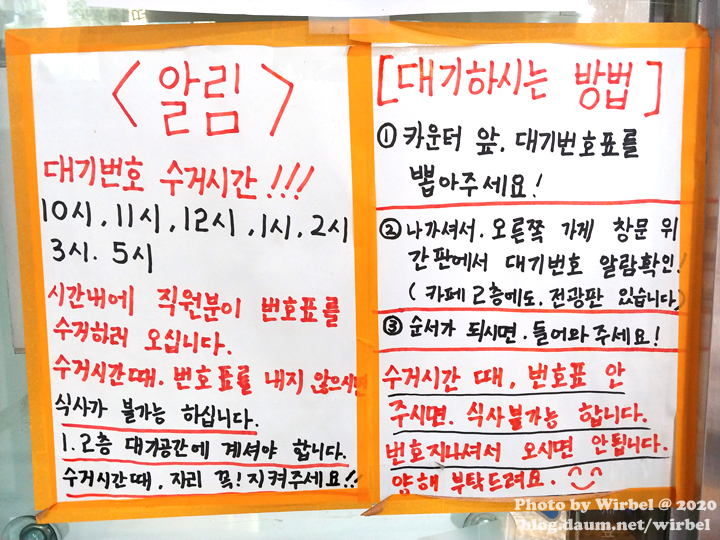 <알림>
대기번호 수거시간!!!
10시, 11시, 12시, 1시, 2시
3시. 5시
시간내에 직원분이 번호표를
수거하러 오십니다.
수거시간때. 번호표를 내지 않으시면
식사가 불가능 하십니다.
1. 2층 대기공간에 계셔야 합니다.
수거시간때, 자리 꼭! 지켜주세요!!
[대기하시는 방법]
① 카운터 앞. 대기번호표를
뽑아주세요!
② 나가셔서. 오른쪽 가게 창문 위
간판에서 대기번호 알람확인!
(카페 2층에도. 전광판 있습니다)
③ 순서가 되시면. 들어와주세요!
수거시간 때, 번호표 안
주시면. 식사불가능 합니다.
번호지나셔서 오시면 안됩니다.
양해 부탁드려요. ^^
Photo by Wirbel @ 2020
blog.daum.net/wirbel